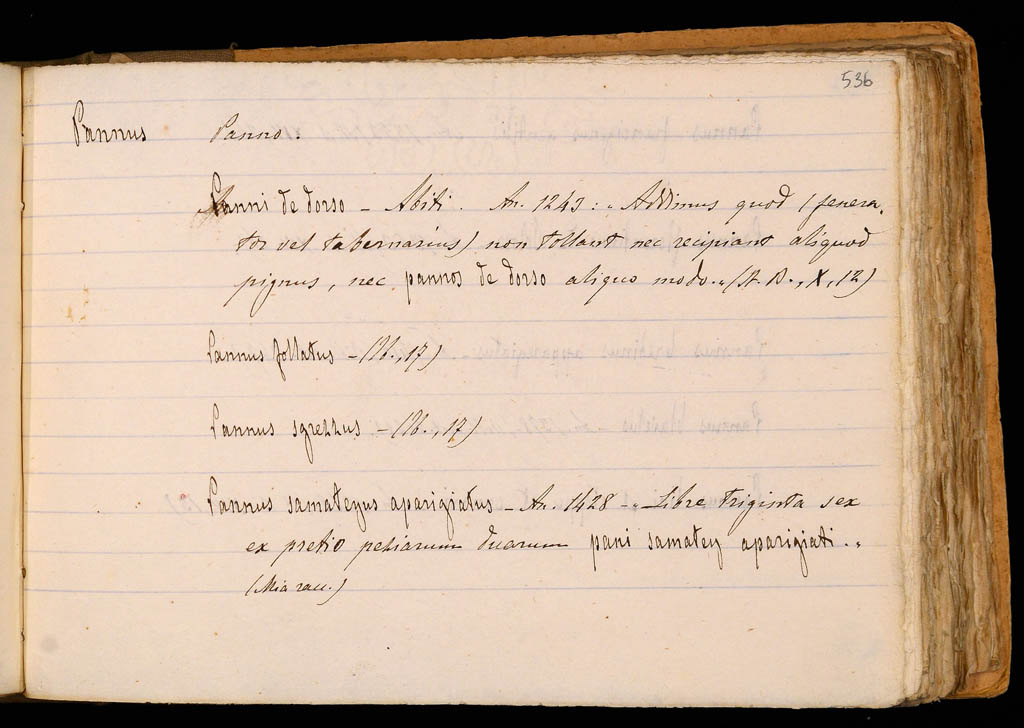 536
Pannus Panno.
Panni de dorso – Abiti. An. 1243: „ Addimus quod (fenera-
tor vel tabernarius) non tollant nec recipiant aliquod
pignus, nec pannos de dorso aliquo modo. „ (St. B., X, 12)
Pannus follatus – (Ib., 17)
Pannus sgrezzus – (Ib., 17)
Pannus samateyus aparigiatus – An. 1428 – „ Libre triginta sex
ex pretio petiarum duarum pani samatey aparigiati. „
(Mia racc.)